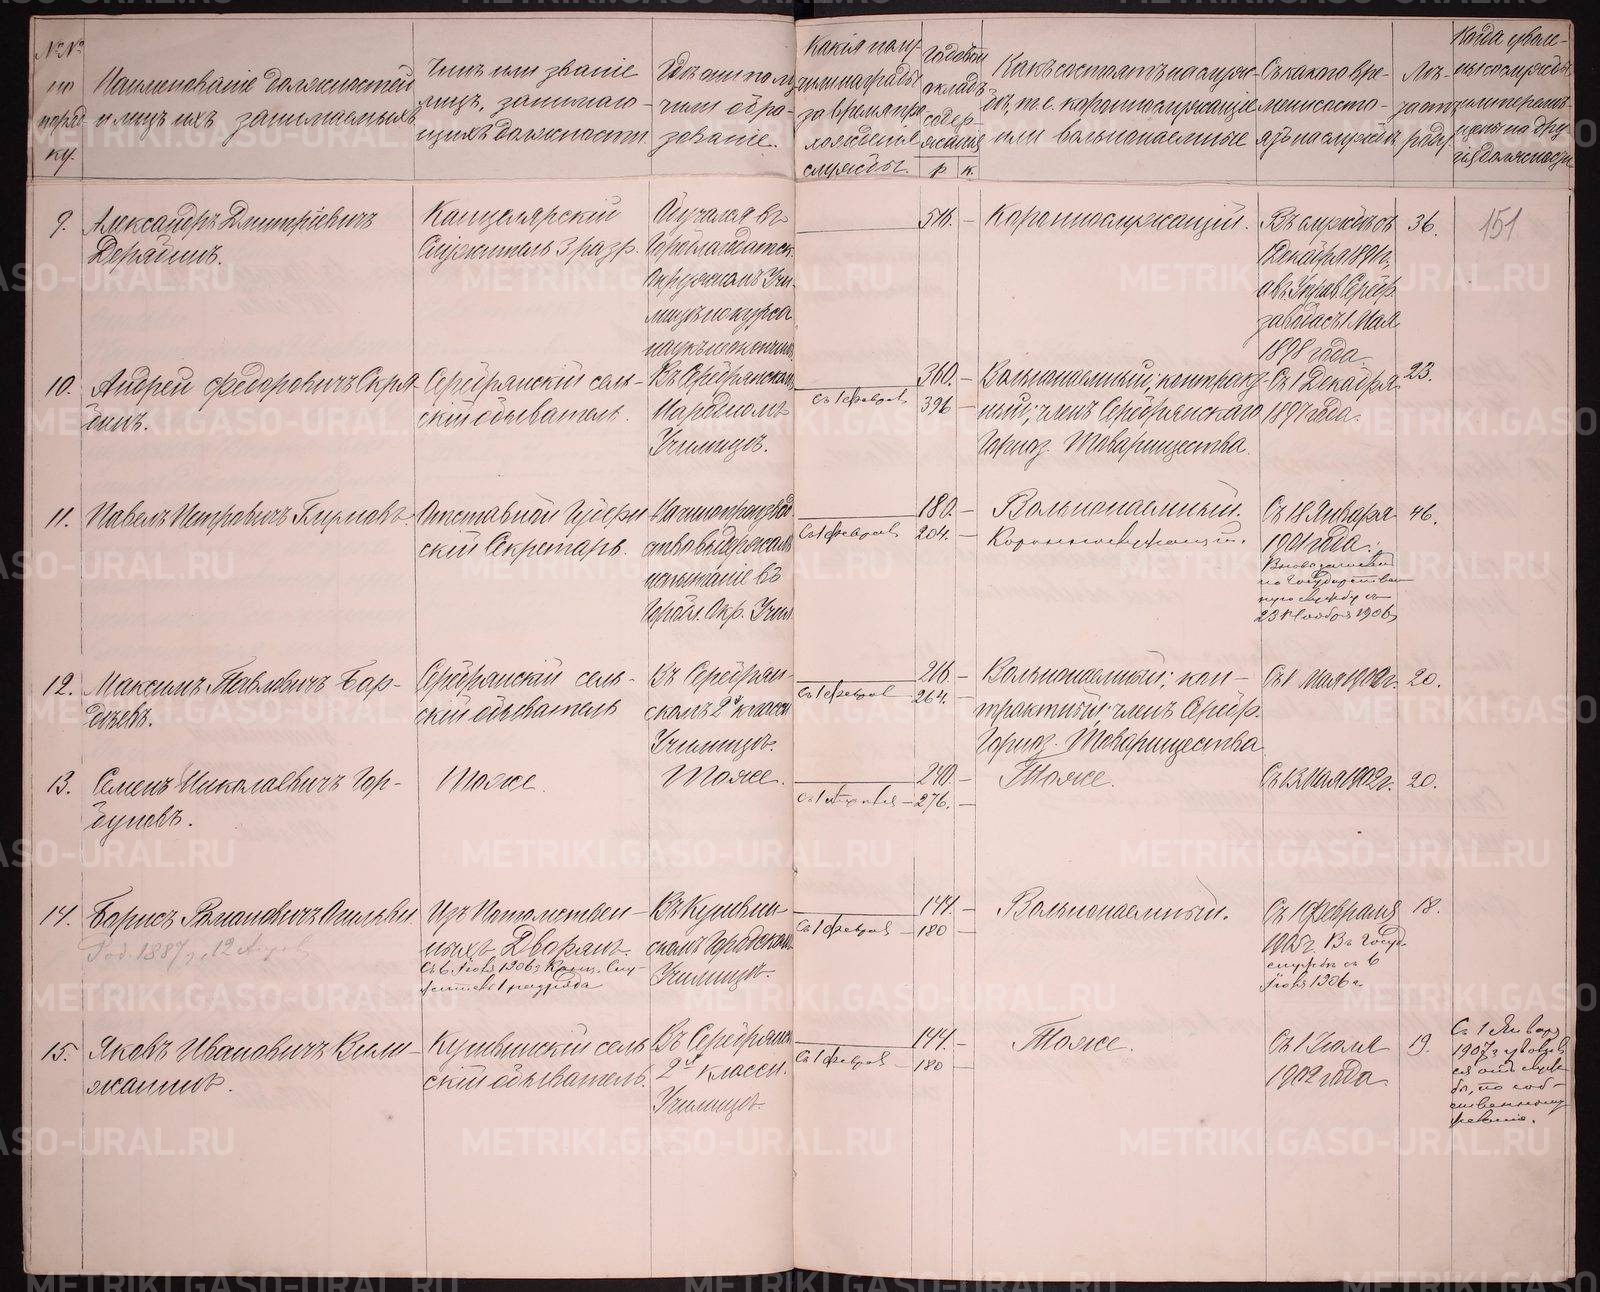 №№ по порядку.
Наименованіе должностей и лицъ ихъ занимаемыхъ
Чинъ или званіе лицъ, занимающихъ должности.
Гдѣ они получили образованіе.
Какія получили награды за время прохожденія службы.
Годовой окладъ содержанія
р. к.
Какъ состоятъ на службѣ, т. е. короннослужащіе или вольнонаемные
Съ какого времени состоятъ на службѣ
Лѣта отъ роду
Когда уволены со службы или перемѣщены на другія должности
151
9. Александръ Дмитріевичъ
Дерябинъ.
Канцелярскій
Служитель 3 разр.
Обучался въ
Горноблагодатск.
Окружномъ Учи-
лищѣ но курса
наукъ не окончилъ
Короннослужащій.
Въ службѣ съ
1 Декабря 1891 г.
а въ Управ. Серебр.
завода съ 1 Мая
1898 года.
36.
10. Андрей Федоровичъ Скря-
бинъ.
Серебрянскій сель-
скій обыватель.
Въ Серебрянскомъ
Народномъ
Училищѣ.
съ 1 Февраля
360. –
396 –
Вольнонаемный; контракт-
ный; членъ Серебрянскаго
Горноз. Товарищества.
Съ 1 Декабря
1897 года.
23.
11. Павелъ Петровичъ
Отставной Губерн-
скій Секретарь.
испытаніе въ
Съ 1 Февраля
180. –
204. –
Вольнонаемный.
Короннослужащій.
Съ 18 Января
1901 года.
на Государствен-
ную службу съ
23 Ноября 1906
46.
12. Максимъ Павловичъ Бар-
Серебрянскій сель-
скій обыватель
Въ Серебрян-
скомъ 2х классн.
Училищѣ.
Съ 1 Февраля
216. –
264. –
Вольнонаемный; кон-
трактный; членъ Серебр.
Горноз. Товарищества
Съ 1 Мая 1902 г.
20.
13. Семенъ Николаевичъ Гор-
буновъ.
Тоже.
Тоже.
240. –
276. –
Тоже.
Съ 13 Мая 1902 г.
20.
14. Борисъ Романовичъ Огильви
Род. 1887 г. 12
Изъ Потомствен-
ныхъ Дворянъ.
Канц. Слу-
житель 1 разряда
Въ Кушвин-
скомъ Городскомъ
Училищѣ.
Съ 1 Февраля
144. –
180 –
Вольнонаемный.
Съ 1 Февраля
1905 г. Въ Госуд.
службѣ съ 6
1906 г.
18.
15. Яковъ Ивановичъ Вили-
жанинъ.
Кушвинскій сель-
скій обыватель.
Въ Серебрянск.
2х классн.
Училищѣ.
Съ 1 Февраля
144. –
180 –
Тоже.
Съ 1 Іюля
1902 года
19.
Съ 1 Января
1907 г. уволенъ
отъ служ-
бы, по соб-
ственному
желанію.
METRIKI.GASO-URAL.RU